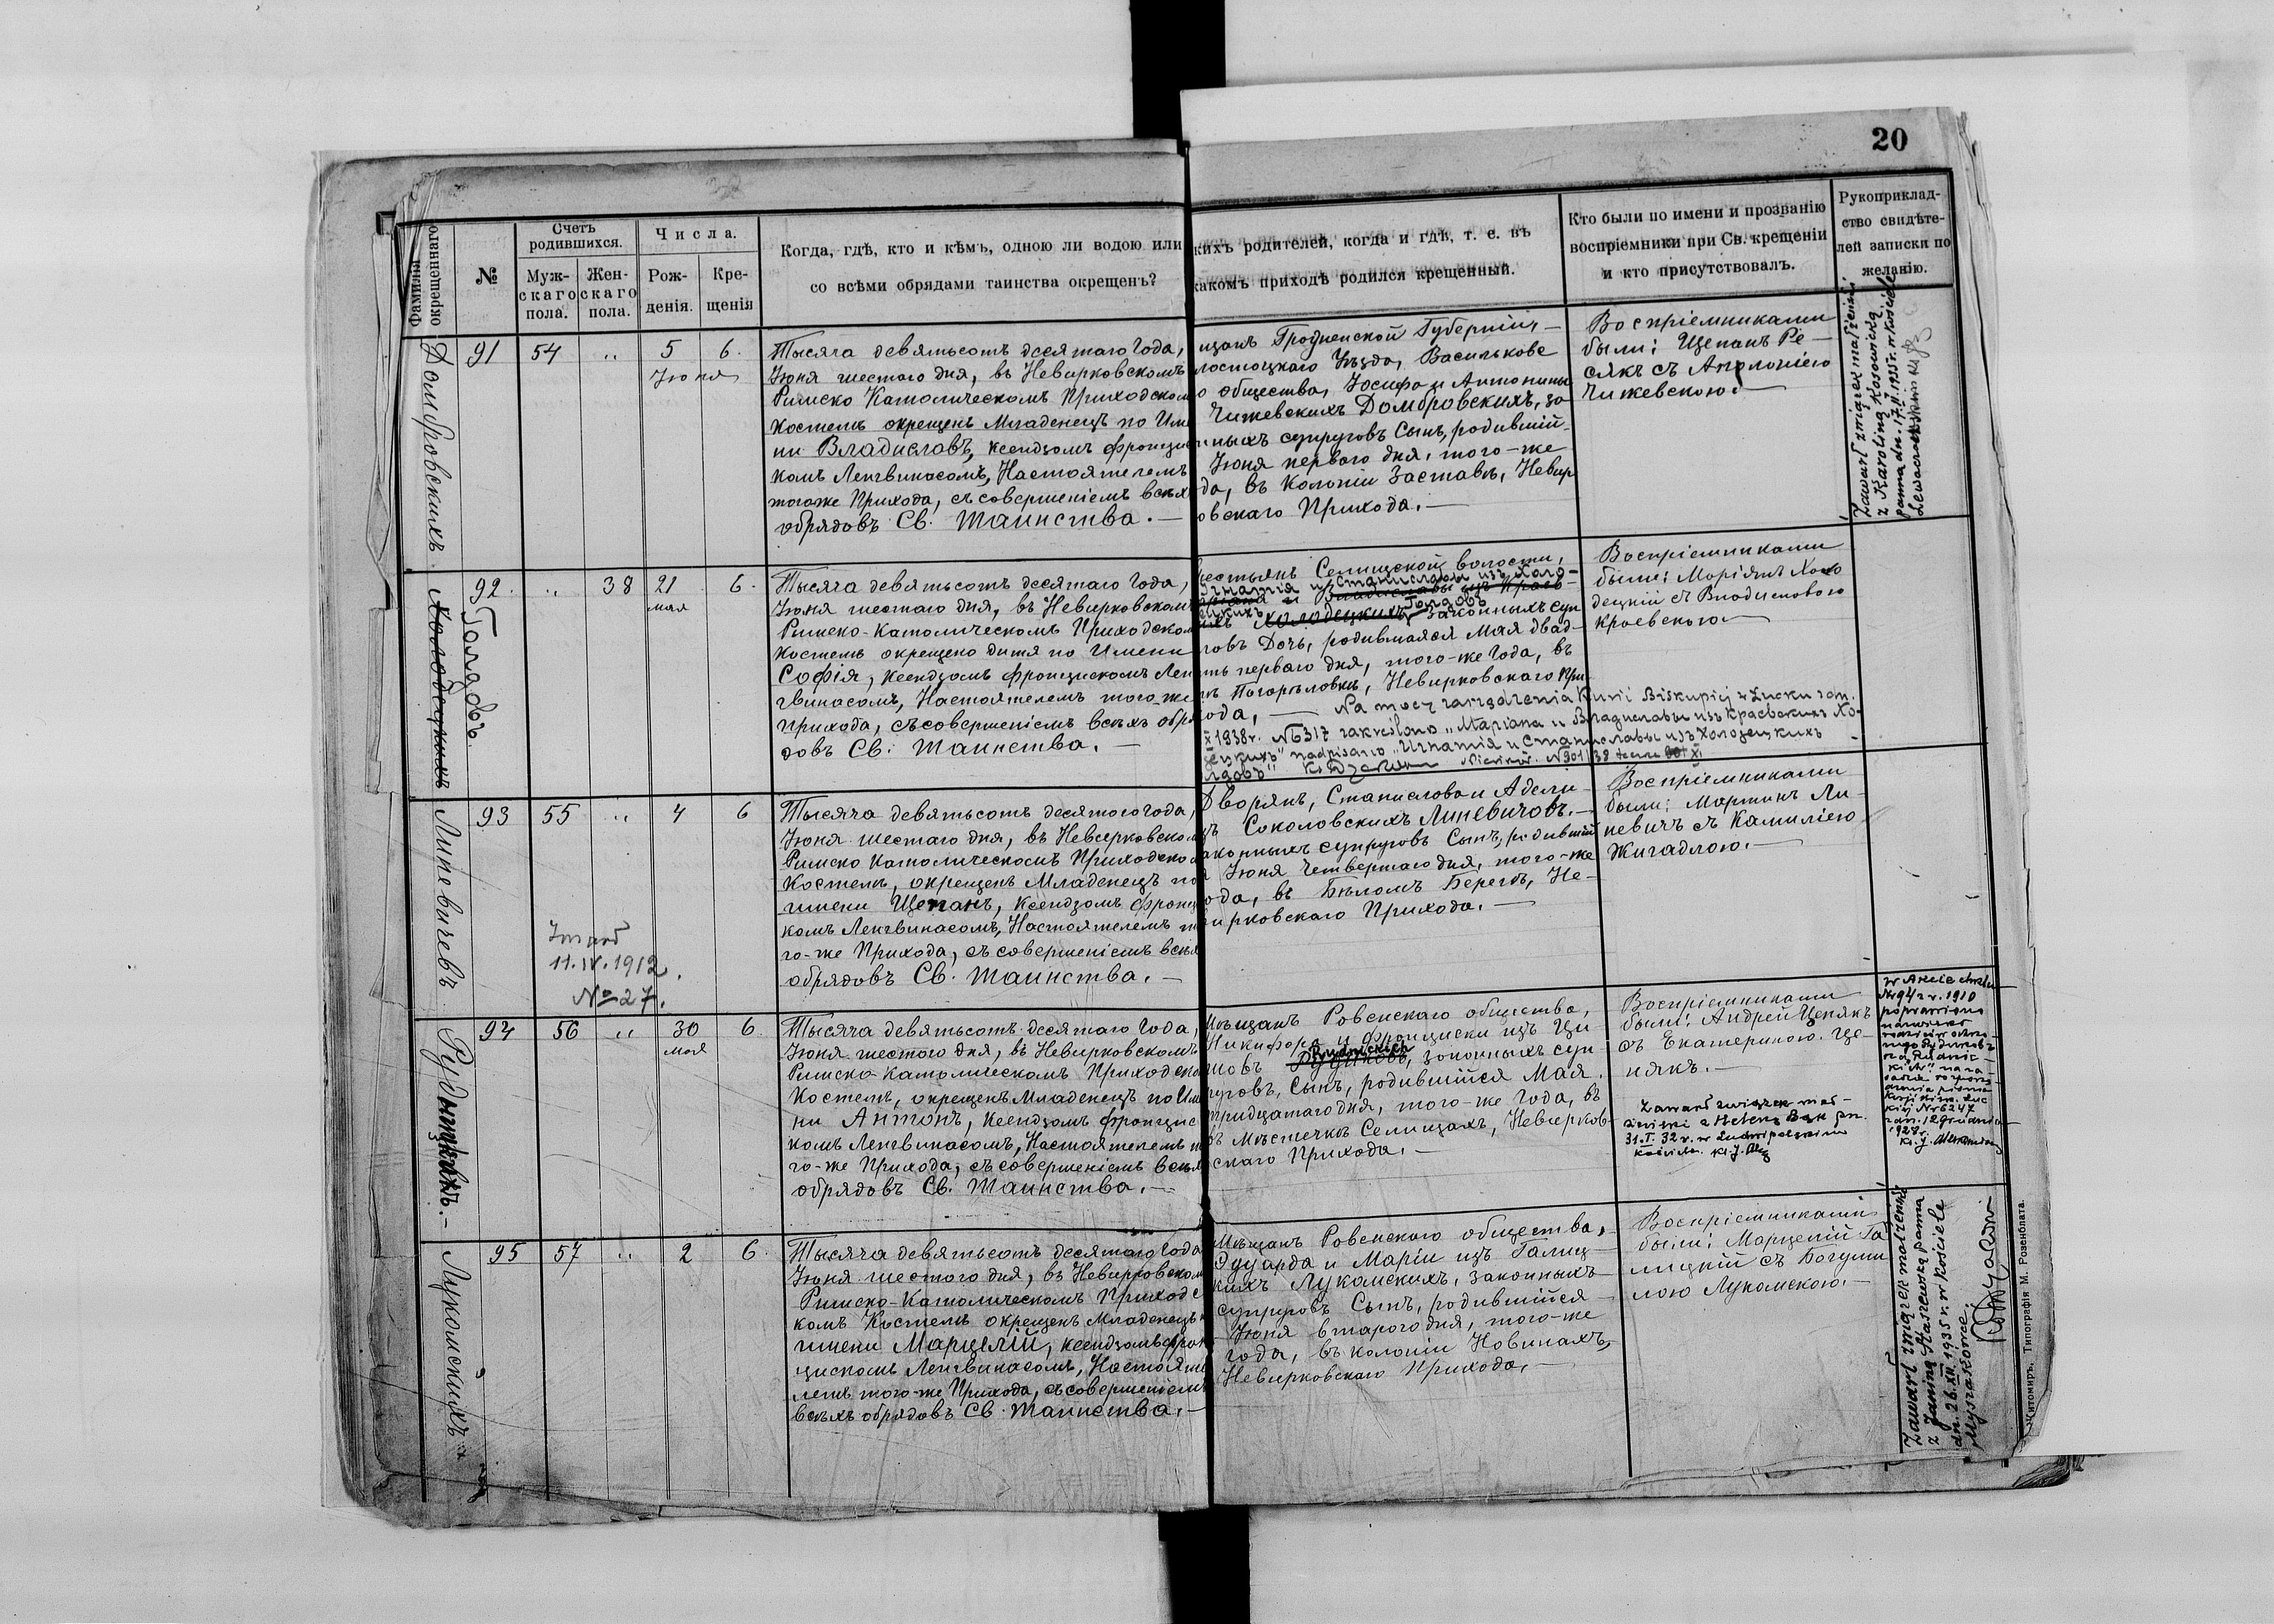 20
Фамилія окрещеннаго
№
Счетъ родившихся.
Муж-
скаго
пола.
Жен-
скаго
пола.
Числа.
Рож-
денія.
Кре-
щенія
Когда, гдѣ, кто и кѣмъ, одною ли водою или
со всѣми обрядами таинства окрещенъ?
кихъ родителей, когда и гдѣ, т. е. въ
какомъ приходѣ родился крещенный.
Кто были по имени и прозванію
воспріемники при Св. крещеніи
и кто присутствовалъ.
Рукоприклад-
ство свидѣте-
лей записки по
желанію.
Домбровскихъ
91
54
"
5
Іюня
6.
Тысяча девятьсотъ десятаго Года,
Іюня шестаго дня, въ Невирковскомъ
Римско Католическомъ Приходском
Костелѣ окрещенъ Младенецъ по Име
ни Владиславъ, Ксендзомъ Францис
комъ Ленгвинасомъ, Настоятелемъ
тогоже Прихода, съ совершеніемъ всѣх
обрядовъ Св. Таинства. —
щанъ Гродненской Губерніи, —
лостоцкаго Уѣзда, Васильковс
о общества, Іосифа и Антонины
Чижевскихъ Домбровскихъ, за
нныхъ супруговъ Сынъ, родившій-
Іюня перваго дня, того-же
да, въ Колоніи Заставѣ, Невир
овскаго Прихода. —
Воспріемниками
были: Щепанъ Ре-
сякъ съ Аполоніею
Чижевскою. —
Zawarł związek małżeński
z Karoliną Kosowicką
panną dn. 17.II.1935 r. w kościele
92.
"
38
21
мая
6.
Холодецкихъ
Голядовъ.
Тысяча девятьсотъ десятаго Года,
Іюня шестаго дня, въ Невирковском
Римско-Католическомъ Приходском
Костелѣ окрещено дитя по Имени
Софія, Ксендзомъ Францискомъ Лен
гвинасомъ, Настоятелемъ того-же
Прихода, съ совершеніемъ всѣхъ обря
довъ Св. Таинства. —
естьянъ Селищской волости,
Игнатія и Станиславы изъ Холо-
Владиславы изъ Краев-
децкихъ Голядовъ
ихъ Холодецкихъ, законныхъ суп
говъ Дочь, родившаяся Мая двад-
ть перваго дня, того-же Года, въ
нѣ Погорѣловкѣ, Невирковскаго При
ода, — Na mocy zarządzenia Kurii Biskupiej w Łucku z dn.
X 1938 r. № 6317 zakreślono „Маріана и Владиславы изъ Краевскихъ Хо-
децкихъ" nadpisano „Игнатія и Станиславы изъ Холодецкихъ
лядовъ"
Воспріемниками
были: Маріянъ Холо
децкій съ Владиславою
Краевскою —
Линевичевъ
93
55
"
4
6
Zmarł
11.IV.1912.
№ 27.
Тысяча девятьсотъ десятаго Года,
Іюня шестаго дня, въ Невирковском
Римско Католическомъ Приходском
Костелѣ, окрещенъ Младенецъ по
имени Щепанъ, Ксендзомъ Францис
комъ Ленгвинасомъ, Настоятелемъ т
го-же Прихода, съ совершеніемъ всѣх
обрядовъ Св. Таинства. —
Дворянъ, Станислава и Адели-
ъ Соколовскихъ Линевичовъ. —
аконныхъ супруговъ Сынъ, родивший
Іюня Четвертаго дня, того-же
ода, въ Бѣломъ Берегѣ, Не-
ирковскаго Прихода. —
Воспріемниками
были: Мартинъ Ли-
невичъ съ Камиліею
Жигадлою. —
94
56
"
30
мая
6.
Тысяча девятьсотъ десятаго Года,
Іюня шестаго дня, въ Невирковскомъ
Римско-Католическомъ Приходско
Костелѣ, окрещенъ Младенецъ по Име
ни Антонъ, Ксендзомъ Францис
комъ Ленгвинасомъ, Настоятелемъ т
го-же Прихода, съ совершеніемъ всѣх
обрядовъ Св. Таинства. —
Мѣщанъ Ровенскаго общества,
Никифора и Франциски изъ Це
Rudnickich
законныхъ суп
руговъ, Сынъ, родившійся Мая
тридцатаго дня, того-же Года, въ
въ Мѣстечкѣ Селищахъ, Невирков-
скаго Прихода. —
Воспріемниками
были: Андрей Ценякъ
съ Екатериною Це-
някъ. —
Zawarł związek mał-
żeński z Heleną Bąk pn.
31.I.32 r. w Ludwipolskim
kościele.
w Akcie chrztu
Nr 94 z r. 1910
poprawiono
nazwisko
Nr 6247
1928 r.
Лукомскихъ
95
57
"
2
6.
Тысяча девятьсотъ десятаго Года
Іюня шестаго дня, въ Невирковском
Римско-Католическомъ Приходс
комъ Костелѣ окрещенъ Младенецъ
имени Марцелій, Ксендзомъ Фран
цискомъ Ленгвинасомъ, Настояте
лемъ того-же Прихода, съ совершеніемъ
всѣхъ обрядовъ Св. Таинства. —
Мѣщанъ Ровенскаго общества,
Эдуарда и Маріи изъ Галиц-
кихъ Лукомскихъ, законныхъ
супруговъ Сынъ, родившійся
Іюня втораго дня, того-же
года, въ колоніи Новинахъ,
Невирковскаго Прихода. —
Воспріемниками
были: Марцелій Га
лицкій съ Богуми
лою Лукомскою. —
Zawarł związek małżeński
z Janiną Staszewską panną
dn. 26.XII.1935 r. w kościele
Житомиръ. Типографія М. Розенблата.